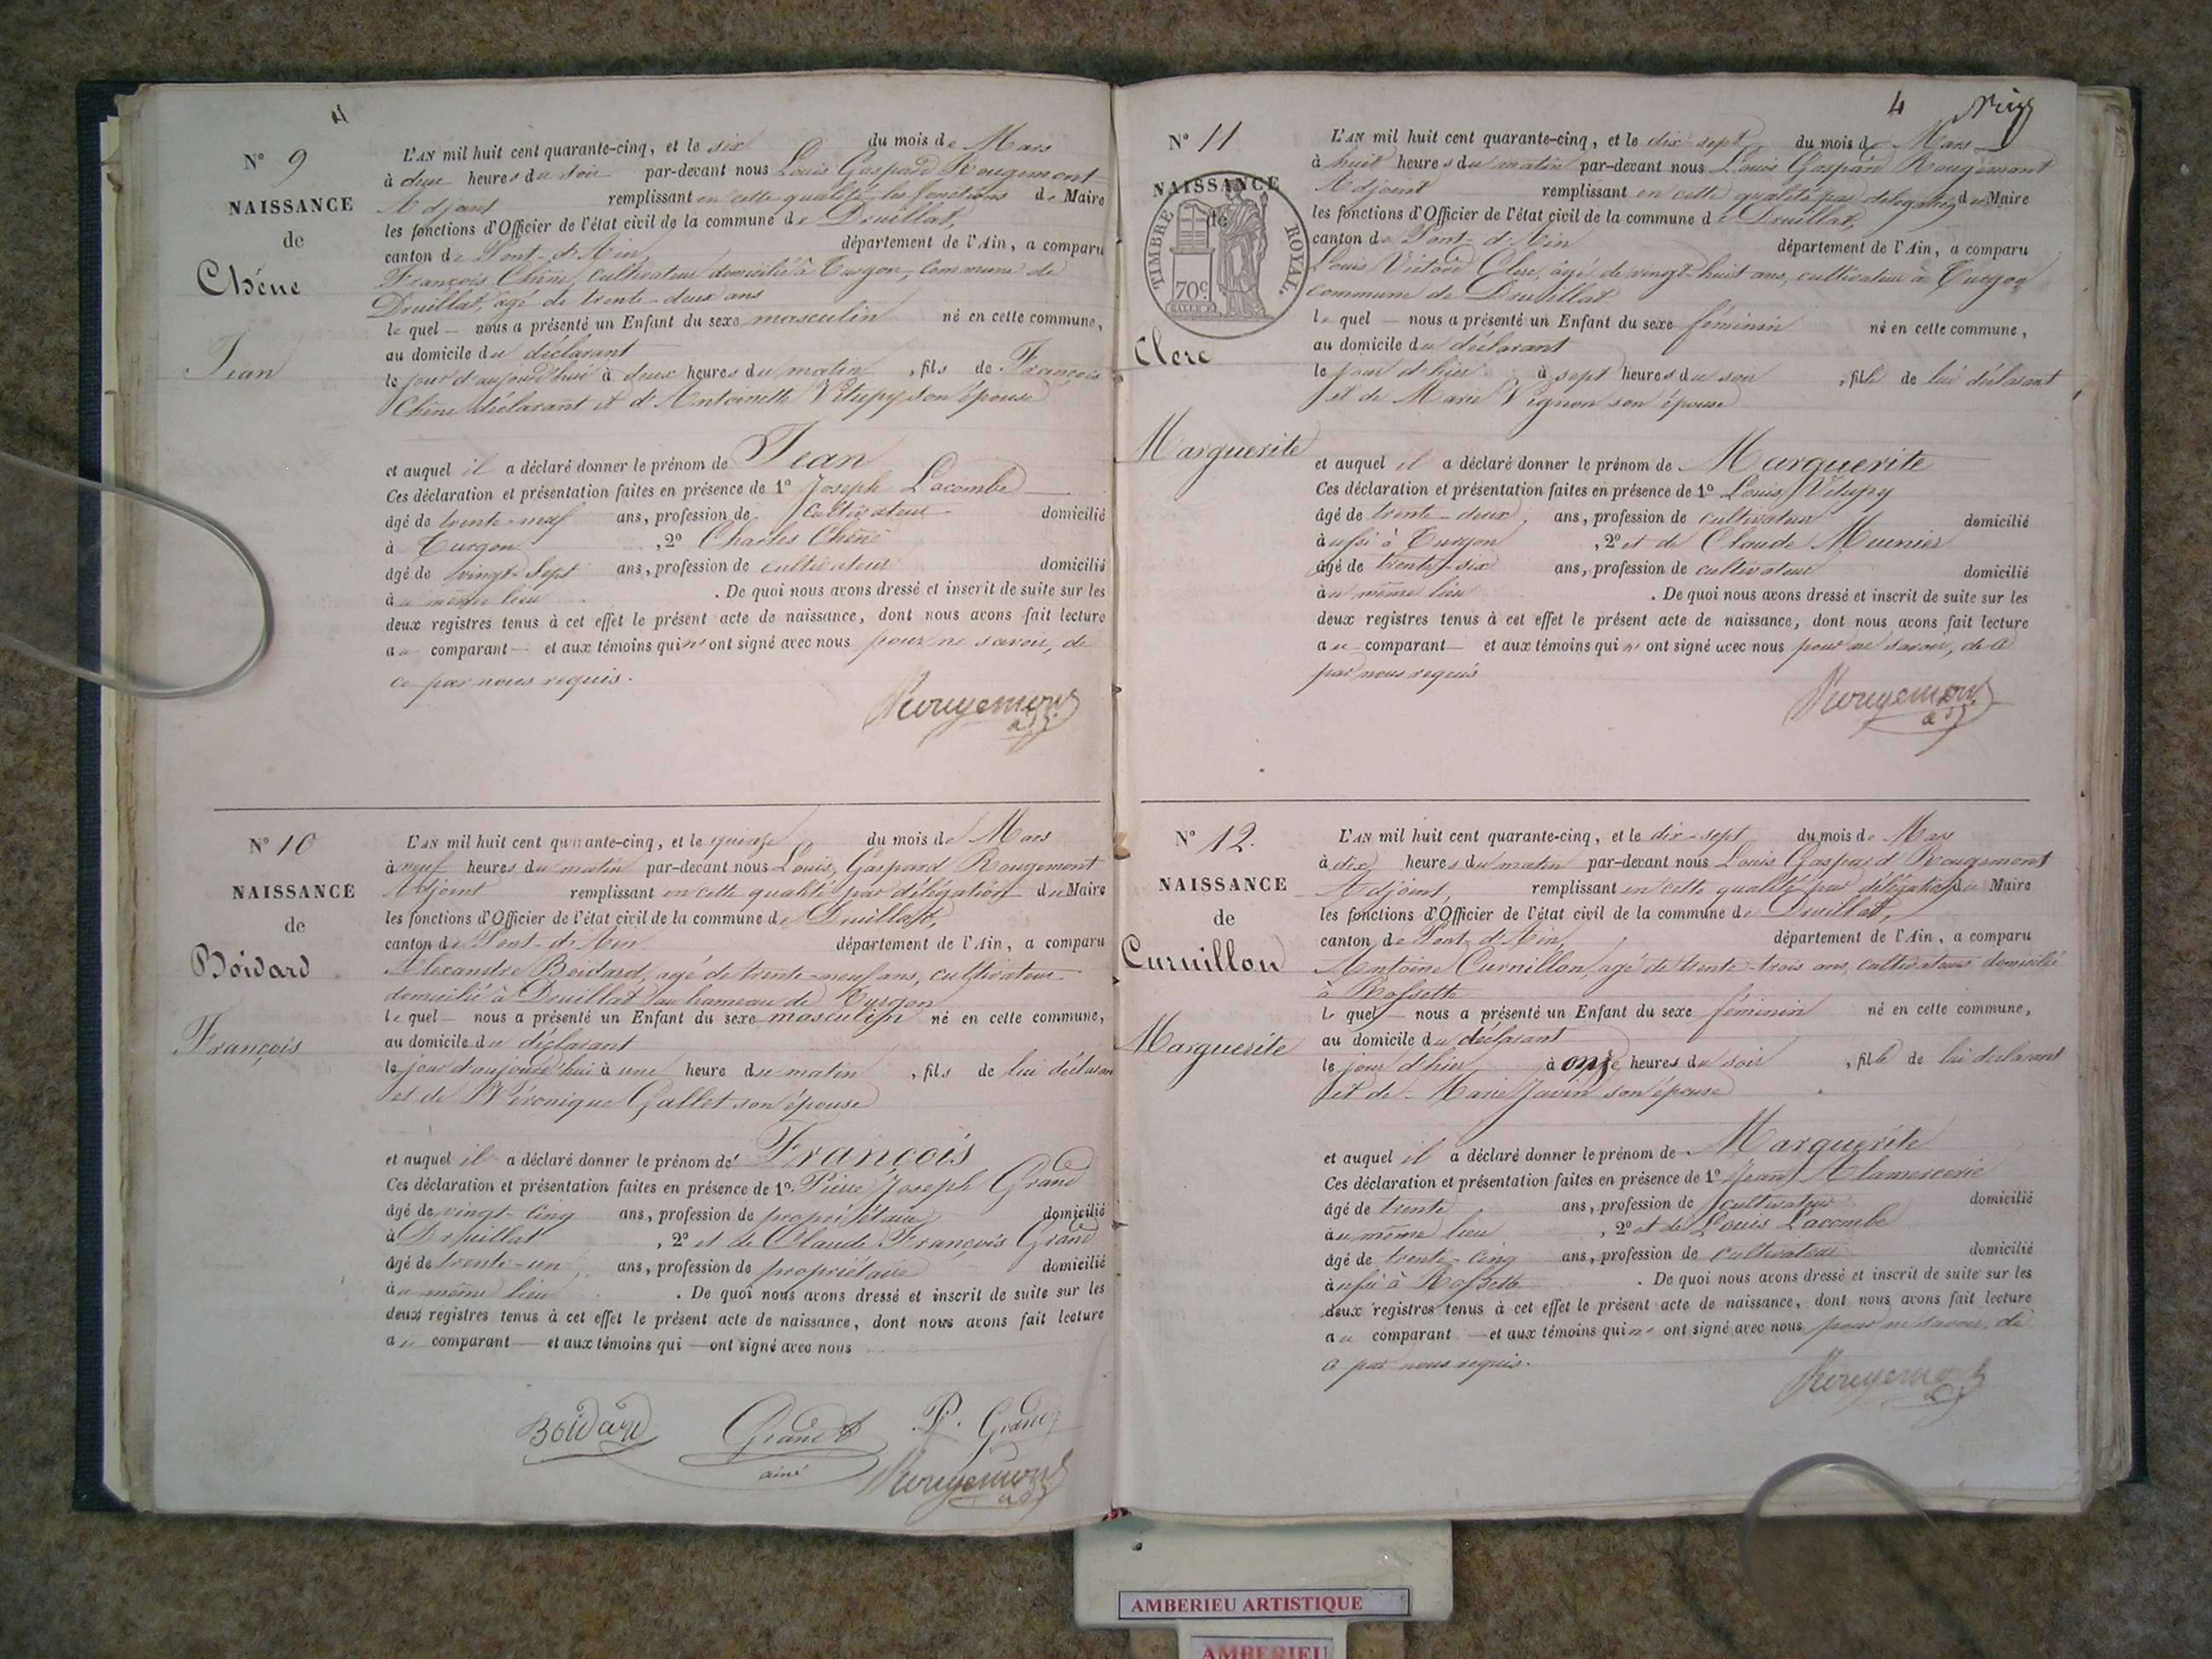 N° 9
NAISSANCE
de
Chêne
Jean
L'AN mil huit cent quarante-cinq, et le six du mois de Mars
à deux heures du soir par-devant nous Louis Gaspard Rougemont
Adjoint remplissant en cette qualité les fonctions de Maire
les fonctions d'Officier de l'état civil de la commune de Druillat,
canton de Pont-d'Ain, département de l'Ain, a comparu
François Chêne, cultivateur domicilié à Turgon, commune de
Druillat, agé de trente-deux ans
le quel — nous a présenté un Enfant du sexe masculin né en cette commune,
au domicile du déclarant
le jour d'aujourd'hui à deux heures du matin, fils de François
Chêne déclarant et d'Antoinette Vitupy son épouse
et auquel il a déclaré donner le prénom de Jean
Ces déclaration et présentation faites en présence de 1° Joseph Lacombe
âgé de trente-neuf ans, profession de cultivateur domicilié
à Turgon, 2° Charles Chêne
âgé de vingt-sept ans, profession de cultivateur domicilié
à u même lieu. De quoi nous avons dressé et inscrit de suite sur les
deux registres tenus à cet effet le présent acte de naissance, dont nous avons fait lecture
au comparant — et aux témoins qui n'ont signé avec nous pour ne savoir, de
ce par nous requis.
Rougemont
adj.
N° 10
NAISSANCE
de
Boidard
François
L'AN mil huit cent quarante-cinq, et le quinze du mois de Mars
à neuf heures du matin par-devant nous Louis, Gaspard Rougemont
Adjoint remplissant en cette qualité par délégation du Maire
les fonctions d'Officier de l'état civil de la commune de Druillat,
canton de Pont-d'Ain département de l'Ain, a comparu
Alexandre Boidard, agé de trente-neuf ans, cultivateur
domicilié à Druillat au hameau de Turgon
le quel — nous a présenté un Enfant du sexe masculin né en cette commune,
au domicile du déclarant
le jour d'aujourd'hui à une heure du matin, fils de lui déclarant
et de Véronique Gallet son épouse
et auquel il a déclaré donner le prénom de François
Ces déclaration et présentation faites en présence de 1° Pierre Joseph Grand
âgé de vingt-cinq ans, profession de propriétaire domicilié
à Druillat, 2° et de Claude François Grand
âgé de trente-un ans, profession de propriétaire domicilié
à u même lieu. De quoi nous avons dressé et inscrit de suite sur les
deux registres tenus à cet effet le présent acte de naissance, dont nous avons fait lecture
au comparant — et aux témoins qui — ont signé avec nous
Boidard Grand P. Grand
ainé Rougemont
adj.
4
N° 11
NAISSANCE
de
TIMBRE ROYAL.
70c
Clerc
Marguerite
L'AN mil huit cent quarante-cinq, et le dix sept du mois de Mars
à huit heures du matin par-devant nous Louis Gaspard Rougemont
Adjoint remplissant en cette qualité par délégation du Maire
les fonctions d'Officier de l'état civil de la commune de Druillat,
canton de Pont-d'Ain département de l'Ain, a comparu
Louis Victore Clerc, âgé de vingt-huit ans, cultivateur à Turgon
commune de Druillat
le quel — nous a présenté un Enfant du sexe féminin né en cette commune,
au domicile du déclarant
le jour d'hier à sept heures du soir, fille de lui déclarant
et de Marie Vignon son épouse
et auquel il a déclaré donner le prénom de Marguerite
Ces déclaration et présentation faites en présence de 1° Louis Vitupy
âgé de trente-deux, ans, profession de cultivateur domicilié
aussi à Turgon, 2° et de Claude Munier
âgé de trente-six ans, profession de cultivateur domicilié
à u même lieu. De quoi nous avons dressé et inscrit de suite sur les
deux registres tenus à cet effet le présent acte de naissance, dont nous avons fait lecture
au comparant — et aux témoins qui n'ont signé avec nous pour ne savoir, de ce
par nous requis
Rougemont
adj.
N° 12.
NAISSANCE
de
Curnillon
Marguerite
L'AN mil huit cent quarante-cinq, et le dix-sept du mois de Mars
à dix heures du matin par-devant nous Louis Gaspard Rougemont
Adjoint, remplissant en cette qualité par délégation du Maire
les fonctions d'Officier de l'état civil de la commune de Druillat,
canton de Pont-d'Ain, département de l'Ain, a comparu
Antoine Curnillon, agé de trente-trois ans, cultivateur domicilié
à Rossette
le quel — nous a présenté un Enfant du sexe féminin né en cette commune,
au domicile du déclarant
le jour d'hier à onze heures du soir, fille de lui déclarant
et de Marie Javin son épouse
et auquel il a déclaré donner le prénom de Marguerite
Ces déclaration et présentation faites en présence de 1° Jean Alamercerie
âgé de trente ans, profession de cultivateur domicilié
au même lieu, 2° et de Louis Lacombe
âgé de trente-cinq ans, profession de cultivateur domicilié
aussi à Rossette. De quoi nous avons dressé et inscrit de suite sur les
deux registres tenus à cet effet le présent acte de naissance, dont nous avons fait lecture
au comparant — et aux témoins qui n'ont signé avec nous pour ne savoir, de
ce par nous requis.
Rougemont
adj.
AMBERIEU ARTISTIQUE
AMBERIEU